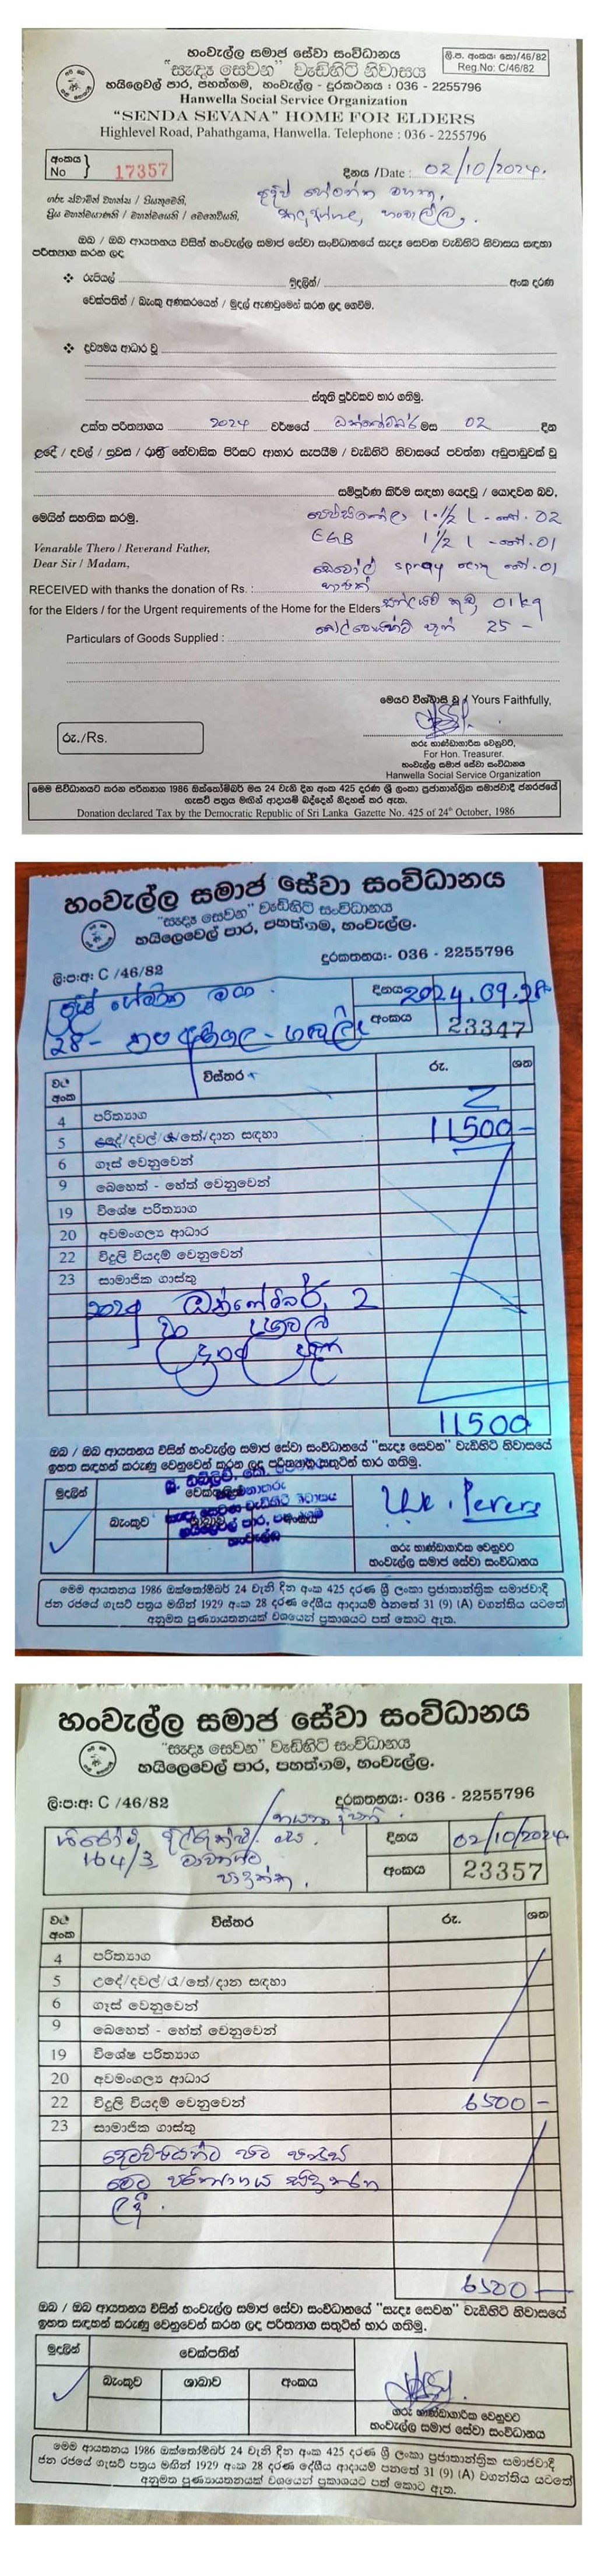 හංවැල්ල සමාජ සේවා සංවිධානය
ලි.ප. අංකය: කො/46/82
Reg.No: C/46/82
"සැඳෑ සෙවන" වැඩිහිටි නිවාසය
හයිලෙවල් පාර, පහත්ගම, හංවැල්ල - දුරකථනය : 036 - 2255796
Hanwella Social Service Organization
"SENDA SEVANA" HOME FOR ELDERS
Highlevel Road, Pahathgama, Hanwella. Telephone : 036 - 2255796
අංකය
No } 17357
දිනය /Date : 02/10/2024.
ගරු ස්වාමින් වහන්ස / පියතුමෙනි,
ප්‍රිය මහත්මයාණනි / මහත්මියනි / මෙනෙවියනි,
ඔබ / ඔබ ආයතනය විසින් හංවැල්ල සමාජ සේවා සංවිධානයේ සැඳෑ සෙවන වැඩිහිටි නිවාසය සඳහා
පරිත්‍යාග කරන ලද
❖ රුපියල් මුදලින්/ අංක දරණ
චෙක්පතින් / බැංකු අණකරයෙන් / මුදල් ඇණවුමෙන් කරන ලද ගෙවීම.
❖ ද්‍රව්‍යමය ආධාර වූ
ස්තූති පූර්වකව භාර ගතිමු.
උක්ත පරිත්‍යාගය 2024 වර්ෂයේ ඔක්තෝබර් මස 02 දින
උදේ / දවල් / සවස / රාත්‍රී නේවාසික පිරිසට ආහාර සැපයීම / වැඩිහිටි නිවාසයේ පවත්නා අඩුපාඩුවක් වූ
සම්පූර්ණ කිරීම සඳහා යෙදවූ / යොදවන බව,
මෙයින් සහතික කරමු.
1.1/2 L - 02
EGB 1 1/2 L - 01
Venarable Thero / Reverand Father,
Dear Sir / Madam,
spray 01
RECEIVED with thanks the donation of Rs. :
for the Elders / for the Urgent requirements of the Home for the Elders 01kg
25 -
Particulars of Goods Supplied :
මෙයට විශ්වාසී වූ / Yours Faithfully,
රු./Rs.
ගරු භාණ්ඩාගාරික වෙනුවට,
For Hon. Treasurer.
හංවැල්ල සමාජ සේවා සංවිධානය
Hanwella Social Service Organization
මෙම සංවිධානයට කරන පරිත්‍යාග 1986 ඔක්තෝම්බර් මස 24 වැනි දින අංක 425 දරණ ශ්‍රී ලංකා ප්‍රජාතාන්ත්‍රික සමාජවාදී ජනරජයේ
ගැසට් පත්‍රය මගින් ආදායම් බද්දෙන් නිදහස් කර ඇත.
Donation declared Tax by the Democratic Republic of Sri Lanka Gazette No. 425 of 24th October, 1986
හංවැල්ල සමාජ සේවා සංවිධානය
"සැඳෑ සෙවන" වැඩිහිටි සංවිධානය
හයිලෙවෙල් පාර, පහත්ගම, හංවැල්ල.
දුරකතනය:- 036 - 2255796
ලි:ප:අ: C /46/82
දිනය 2024.09.28
අංකය 23347
වට අංක විස්තර රු. ශත
4 පරිත්‍යාග
5 උදේ/දවල්/රෑ/තේ/දාන සඳහා 11500 -
6 ගෑස් වෙනුවෙන්
9 බෙහෙත් - හේත් වෙනුවෙන්
19 විශේෂ පරිත්‍යාග
20 අවමංගල්‍ය ආධාර
22 විදුලි වියදම් වෙනුවෙන්
23 සාමාජික ගාස්තු
2024 ඔක්තෝම්බර් 2
11500
ඔබ / ඔබ ආයතනය විසින් හංවැල්ල සමාජ සේවා සංවිධානයේ "සැඳෑ සෙවන" වැඩිහිටි නිවාසයේ
ඉහත සඳහන් කරුණු වෙනුවෙන් කරන ලද පරිත්‍යාග සතුටින් භාර ගතිමු.
මුදලින්
බැංකුව
ගරු භාණ්ඩාගාරික වෙනුවට
හංවැල්ල සමාජ සේවා සංවිධානය
මෙම ආයතනය 1986 ඔක්තෝම්බර් 24 වැනි දින අංක 425 දරණ ශ්‍රී ලංකා ප්‍රජාතාන්ත්‍රික සමාජවාදී
ජන රජයේ ගැසට් පත්‍රය මගින් 1929 අංක 28 දරණ දේශීය ආදායම් පනතේ 31 (9) (A) වගන්තිය යටතේ
අනුමත පුණ්‍යායතනයක් වශයෙන් ප්‍රකාශයට පත් කොට ඇත.
හංවැල්ල සමාජ සේවා සංවිධානය
"සැඳෑ සෙවන" වැඩිහිටි සංවිධානය
හයිලෙවෙල් පාර, පහත්ගම, හංවැල්ල.
ලි:ප:අ: C /46/82
දුරකතනය:- 036 - 2255796
164/3
පාදුක්ක.
දිනය 02/10/2024.
අංකය 23357
වට අංක විස්තර රු. ශත
4 පරිත්‍යාග
5 උදේ/දවල්/රෑ/තේ/දාන සඳහා
6 ගෑස් වෙනුවෙන්
9 බෙහෙත් - හේත් වෙනුවෙන්
19 විශේෂ පරිත්‍යාග
20 අවමංගල්‍ය ආධාර
22 විදුලි වියදම් වෙනුවෙන් 6500 -
23 සාමාජික ගාස්තු
මෙම පරිත්‍යාගය සිදු කරන
ලදී.
6500 -
ඔබ / ඔබ ආයතනය විසින් හංවැල්ල සමාජ සේවා සංවිධානයේ "සැඳෑ සෙවන" වැඩිහිටි නිවාසයේ
ඉහත සඳහන් කරුණු වෙනුවෙන් කරන ලද පරිත්‍යාග සතුටින් භාර ගතිමු.
මුදලින් චෙක්පතින්
බැංකුව ශාඛාව අංකය
ගරු භාණ්ඩාගාරික වෙනුවට
හංවැල්ල සමාජ සේවා සංවිධානය
මෙම ආයතනය 1986 ඔක්තෝම්බර් 24 වැනි දින අංක 425 දරණ ශ්‍රී ලංකා ප්‍රජාතාන්ත්‍රික සමාජවාදී
ජන රජයේ ගැසට් පත්‍රය මගින් 1929 අංක 28 දරණ දේශීය ආදායම් පනතේ 31 (9) (A) වගන්තිය යටතේ
අනුමත පුණ්‍යායතනයක් වශයෙන් ප්‍රකාශයට පත් කොට ඇත.